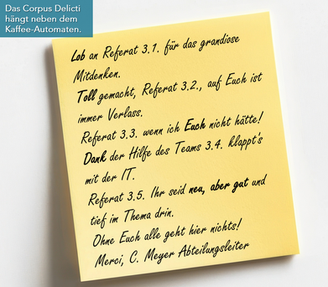 Das Corpus Delicti
hängt neben dem
Kaffee-Automaten.
Lob an Referat 3.1. für das grandiose
Mitdenken.
Toll gemacht, Referat 3.2., auf Euch ist
immer Verlass.
Referat 3.3. wenn ich Euch nicht hätte!
Dank der Hilfe des Teams 3.4. klappt's
mit der IT.
Referat 3.5. Ihr seid neu, aber gut und
tief im Thema drin.
Ohne Euch alle geht hier nichts!
Merci, C. Meyer Abteilungsleiter